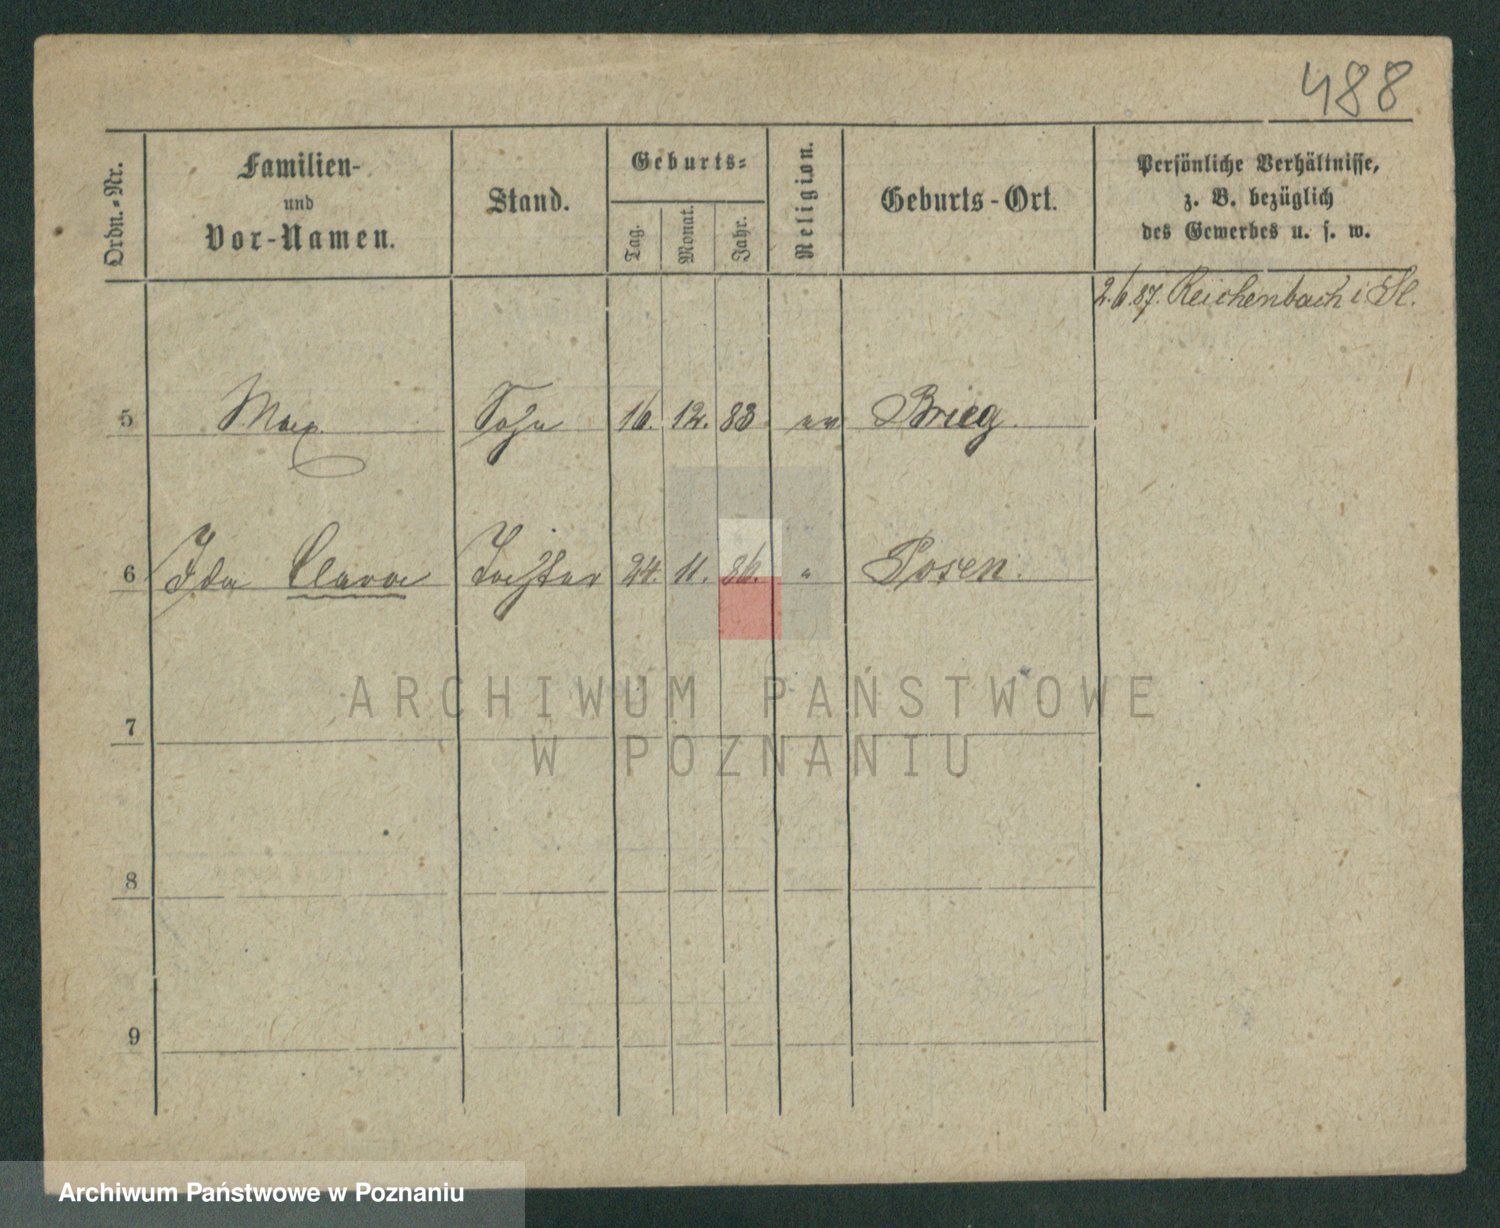 488
Ordn.-Nr.
Familien-
und
Vor-Namen.
Stand.
Geburts-
Tag.
Monat.
Jahr.
Religion.
Geburts-Ort.
Persönliche Verhältnisse,
z. B. bezüglich
des Gewerbes u. s. w.
2.6.87. Reichenbach i Sl.
5 Max Sohn 16. 12. 83. ev Brieg.
6 Ida Clara Tochter 24. 11. 86. " Posen.
ARCHIWUM PAŃSTWOWE
W POZNANIU
7
8
9
Archiwum Państwowe w Poznaniu